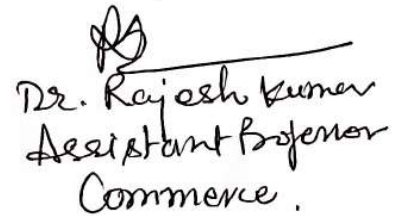 Dr. Rajesh Kumar
Assistant Professor
Commerce.